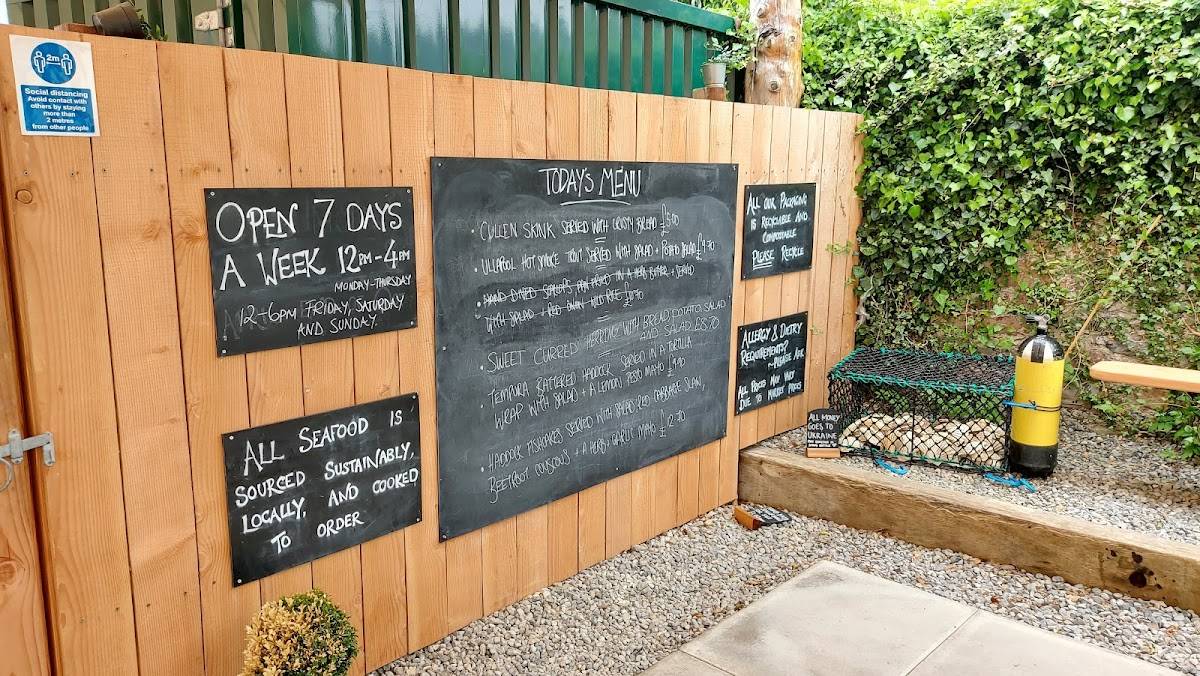 2m
Social distancing
Avoid contact with
others by staying
more than
2 metres
from other people
OPEN 7 DAYS
A WEEK 12PM-4PM
MONDAY-THURSDAY
12-6PM FRIDAY, SATURDAY
AND SUNDAY.
ALL SEAFOOD IS
SOURCED SUSTAINABLY,
LOCALLY, AND COOKED
TO ORDER
TODAY'S MENU
• CULLEN SKINK SERVED WITH CRUSTY BREAD
• ULLAPOOL HOT SMOKE SERVED WITH SALAD + POTATO SALAD £9.70
• HAND DIVED SCALLOPS PAN FRIED IN A HERB BUTTER + SERVED
WITH SALAD + RED WILD RICE
• SWEET CURRED HERRING WITH BREAD, POTATO SALAD
AND SALAD £8.70
• TEMPURA BATTERED HADDOCK SERVED IN A TORTILLA
WRAP WITH SALAD + A LEMON, PESTO MAYO £9.90
• HADDOCK FISHCAKES SERVED WITH SALAD, RED CABBAGE SLAW,
BEETROOT COUSCOUS + A HERB + GARLIC MAYO £12.70
ALL OUR PACKAGING
IS RECYCLABLE AND
COMPOSTABLE
PLEASE RECYCLE
ALLERGY & DIETRY
REQUIREMENTS?
~PLEASE ASK
ALL PRICES MAY VARY
DUE TO MARKET PRICES
ALL MONEY
GOES TO
UKRAINE